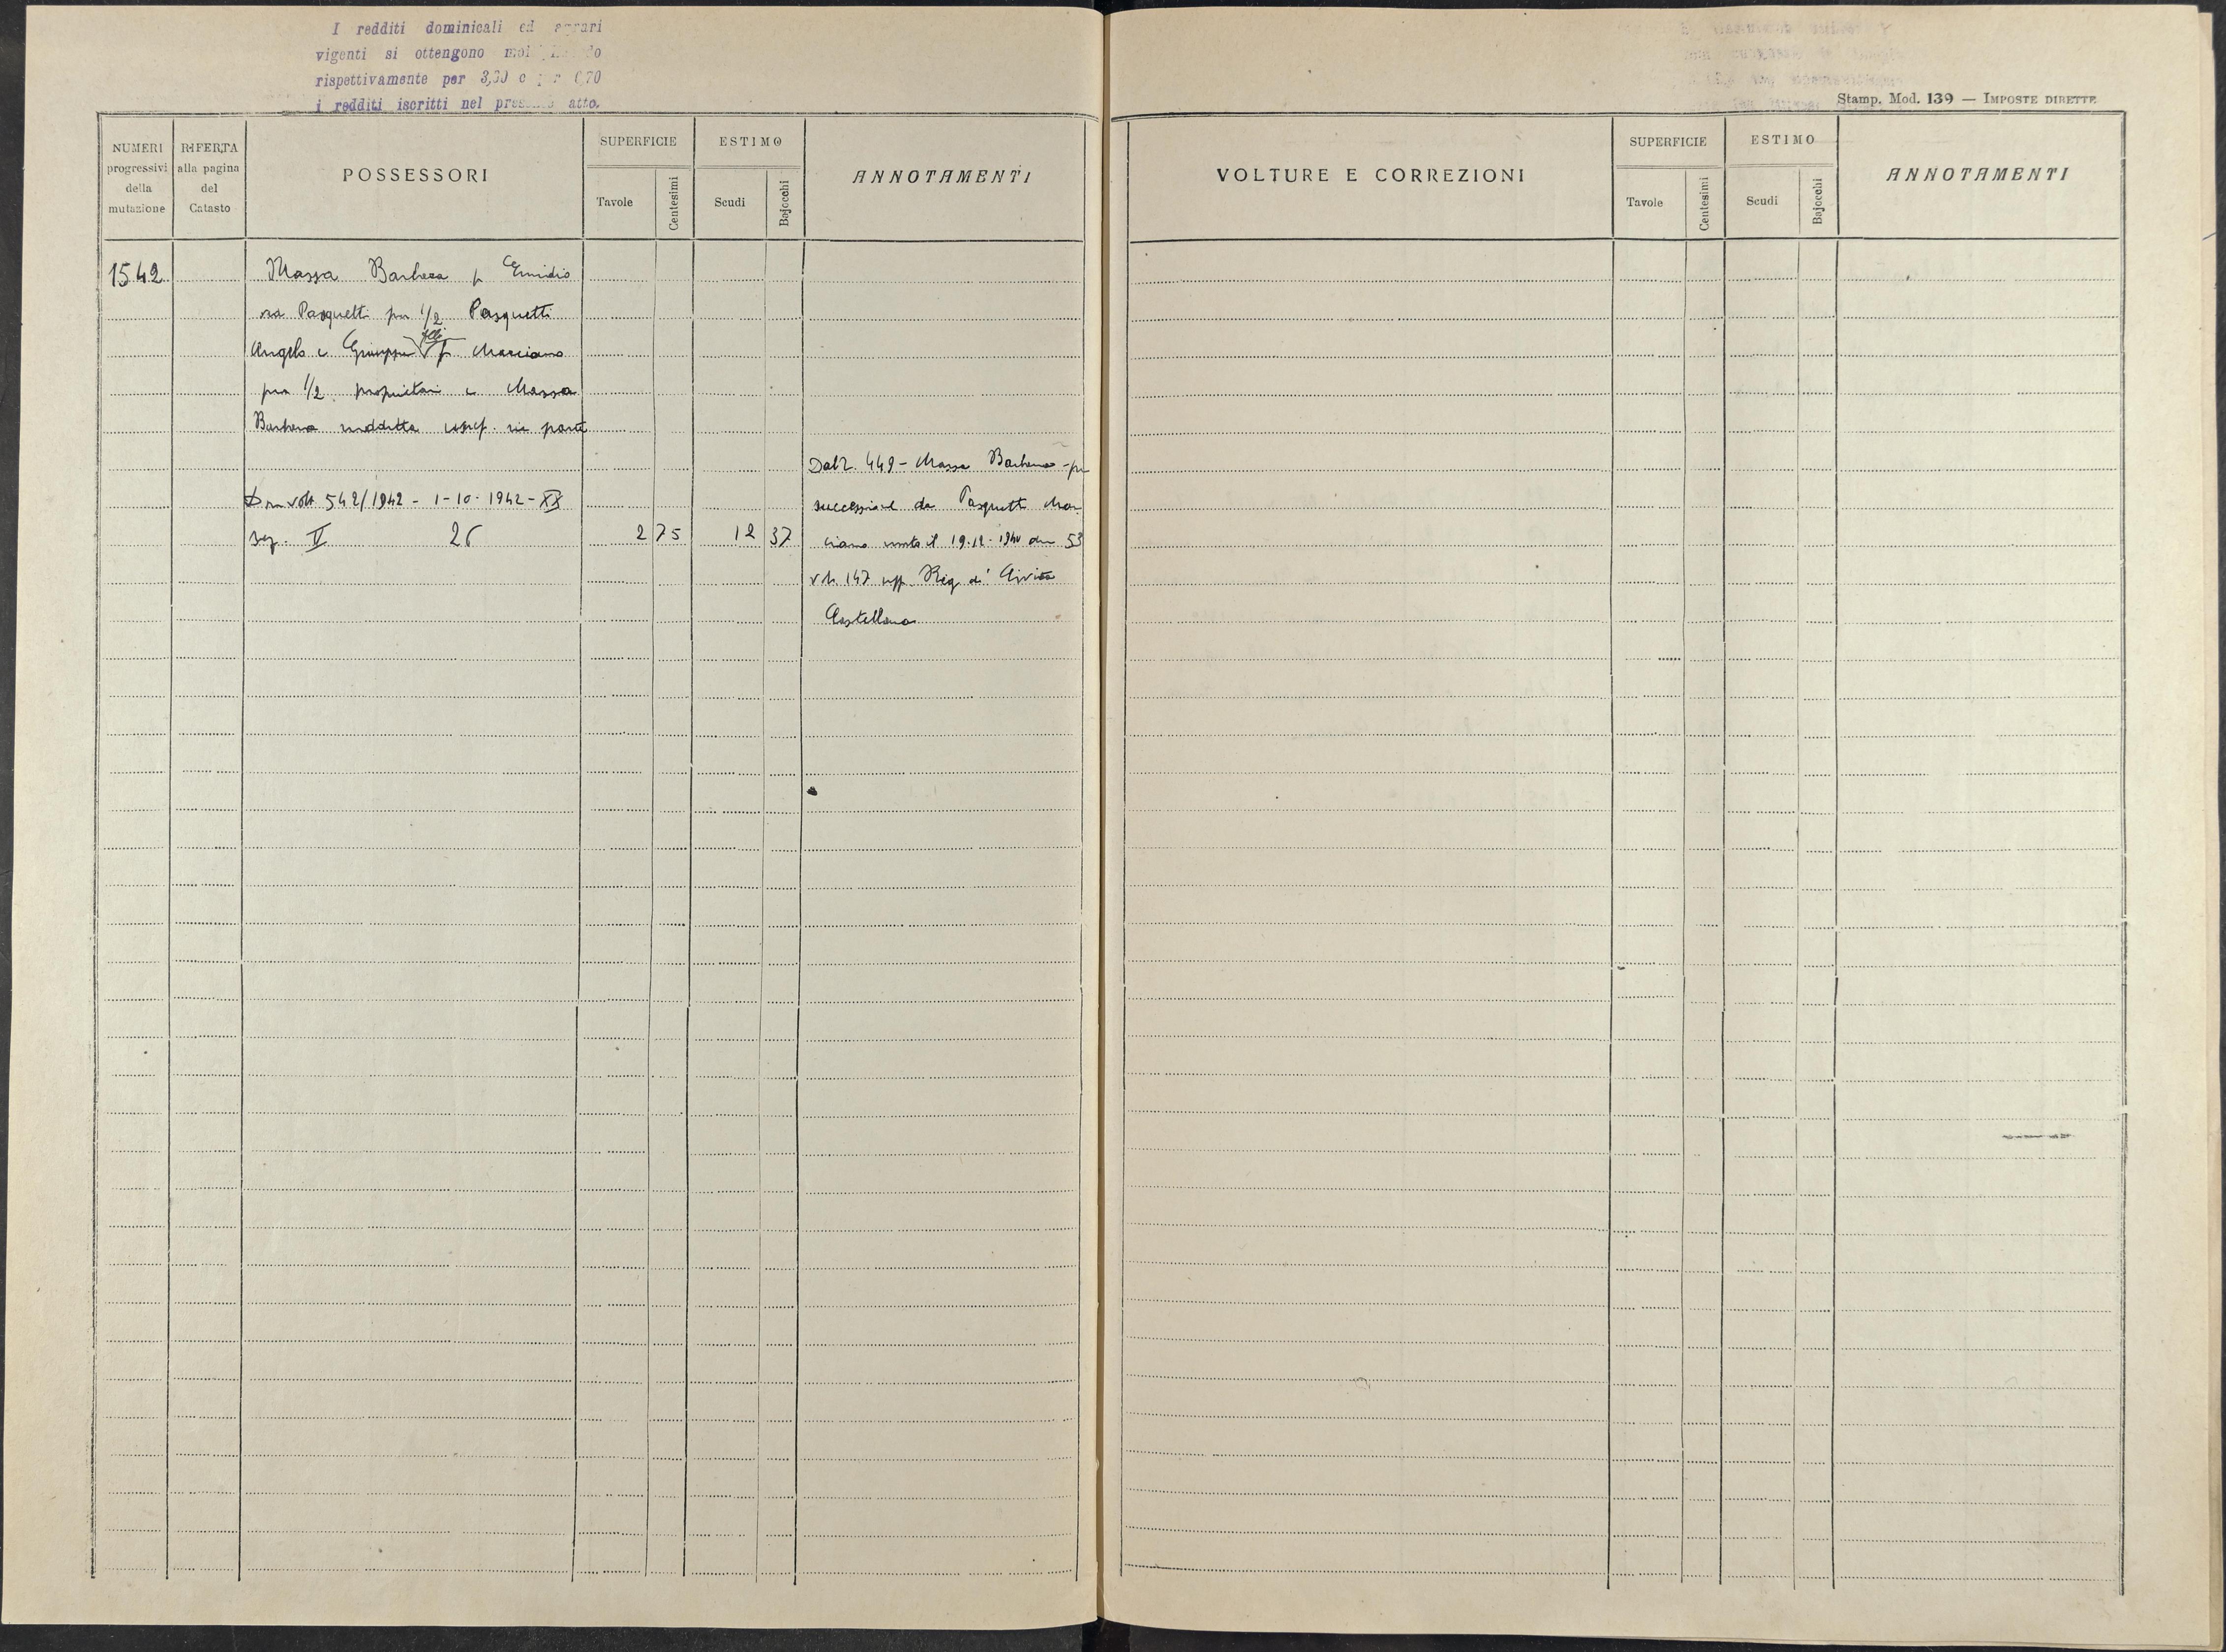 I redditi dominicali ed agrari
vigenti si ottengono
rispettivamente per 3,30 e per 0,70
i redditi iscritti nel presente atto.
Stamp. Mod. 139 — IMPOSTE DIRETTE
NUMERI progressivi della mutazione
RIFERTA alla pagina del Catasto
POSSESSORI
SUPERFICIE
Tavole
Centesimi
ESTIMO
Scudi
Bajocchi
ANNOTAMENTI
VOLTURE E CORREZIONI
SUPERFICIE
Tavole
Centesimi
ESTIMO
Scudi
Bajocchi
ANNOTAMENTI
1542 Massa Barbera f Emidio
va Pasquetti per 1/2 Pasquetti
Angelo e Giuseppe flli f. Marciano
per 1/2 proprietari e Massa
Barbera suddetta usuf. in parte
Dom volt 542/1942 - 1-10-1942-XX
sez. V 26 2 75 12 37
Dal 2. 449 - Massa Barbera - per
successione da Pasquetti Mar
ciano morto il 19.12.1940 den 53
vol. 147 uff. Reg di Civita
Castellana